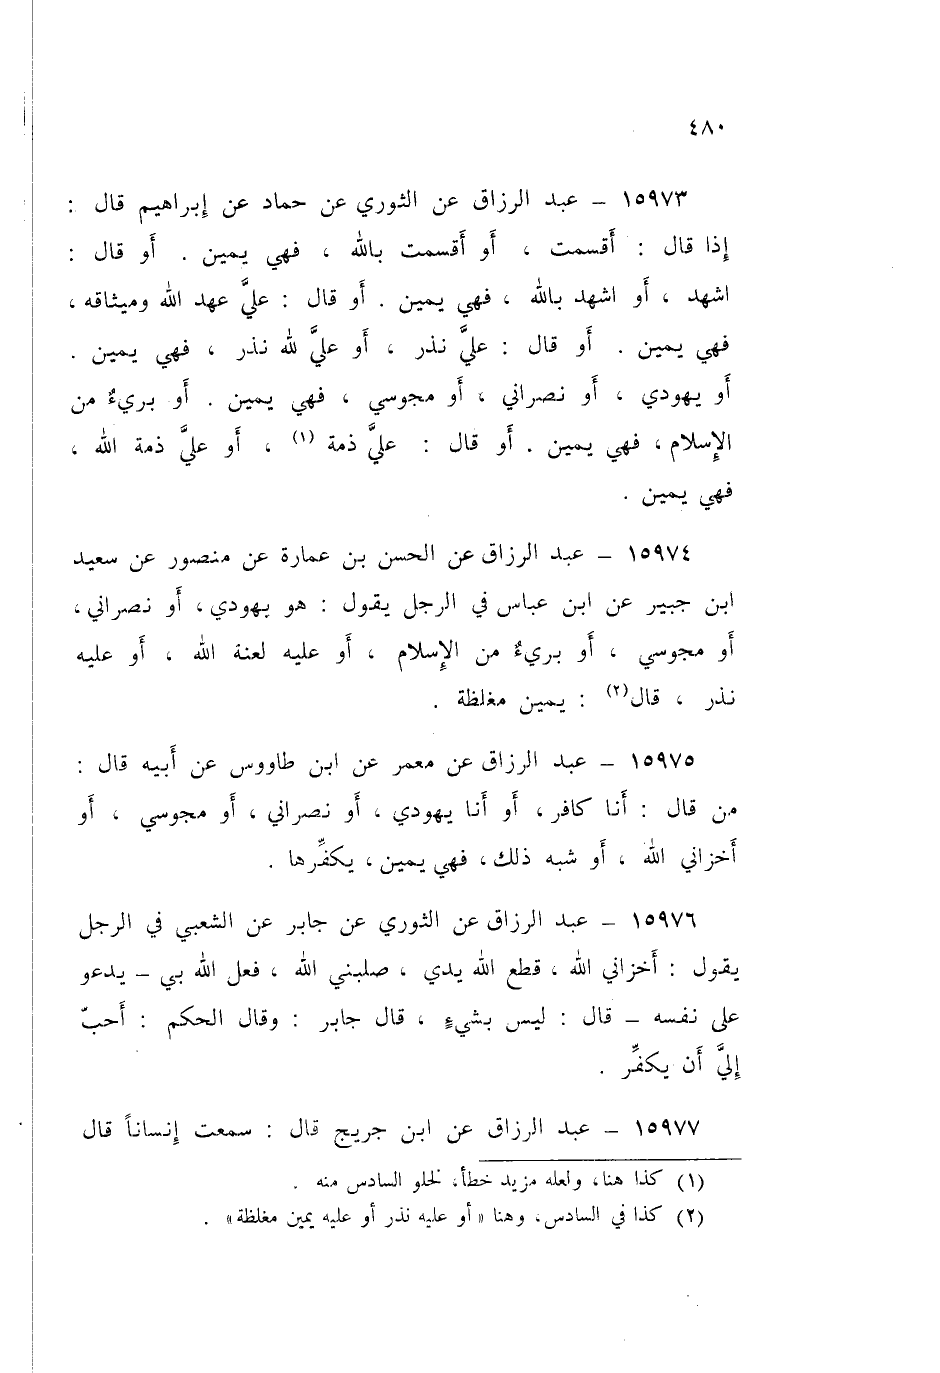 ٤٨٠
١٥٩٧٣ – عبد الرزاق عن الثوري عن حماد عن إبراهيم قال :
إذا قال : أقسمت ، أو أقسمت بالله ، فهي يمين . أو قال :
اشهد ، أو اشهد بالله ، فهي يمين . أو قال : عليَّ عهد الله وميثاقه ،
فهي يمين . أو قال : عليَّ نذر ، أو عليَّ لله نذر ، فهي يمين .
أو يهودي ، أو نصراني ، أو مجوسي ، فهي يمين . أو بريءٌ من
الإسلام ، فهي يمين . أو قال : عليَّ ذمة (١) ، أو عليَّ ذمة الله ،
فهي يمين .
١٥٩٧٤ – عبد الرزاق عن الحسن بن عمارة عن منصور عن سعيد
ابن جبير عن ابن عباس في الرجل يقول : هو يهودي ، أو نصراني ،
أو مجوسي ، أو بريءٌ من الإسلام ، أو عليه لعنة الله ، أو عليه
نذر ، قال (٢) : يمين مغلظة .
١٥٩٧٥ – عبد الرزاق عن معمر عن ابن طاووس عن أبيه قال :
من قال : أنا كافر ، أو أنا يهودي ، أو نصراني ، أو مجوسي ، أو
أخزاني الله ، أو شبه ذلك ، فهي يمين ، يكفِّرها .
١٥٩٧٦ – عبد الرزاق عن الثوري عن جابر عن الشعبي في الرجل
يقول : أخزاني الله ، قطع الله يدي ، صلبني الله ، فعل الله بي – يدعو
على نفسه – قال : ليس بشيءٍ ، قال جابر : وقال الحكم : أحبّ
إليَّ أن يكفِّر .
١٥٩٧٧ – عبد الرزاق عن ابن جريج قال : سمعت إنساناً قال
(١) كذا هنا، ولعله مزيد خطأ، لخلو السادس منه .
(٢) كذا في السادس، وهنا « أو عليه نذر أو عليه يمين مغلظة » .